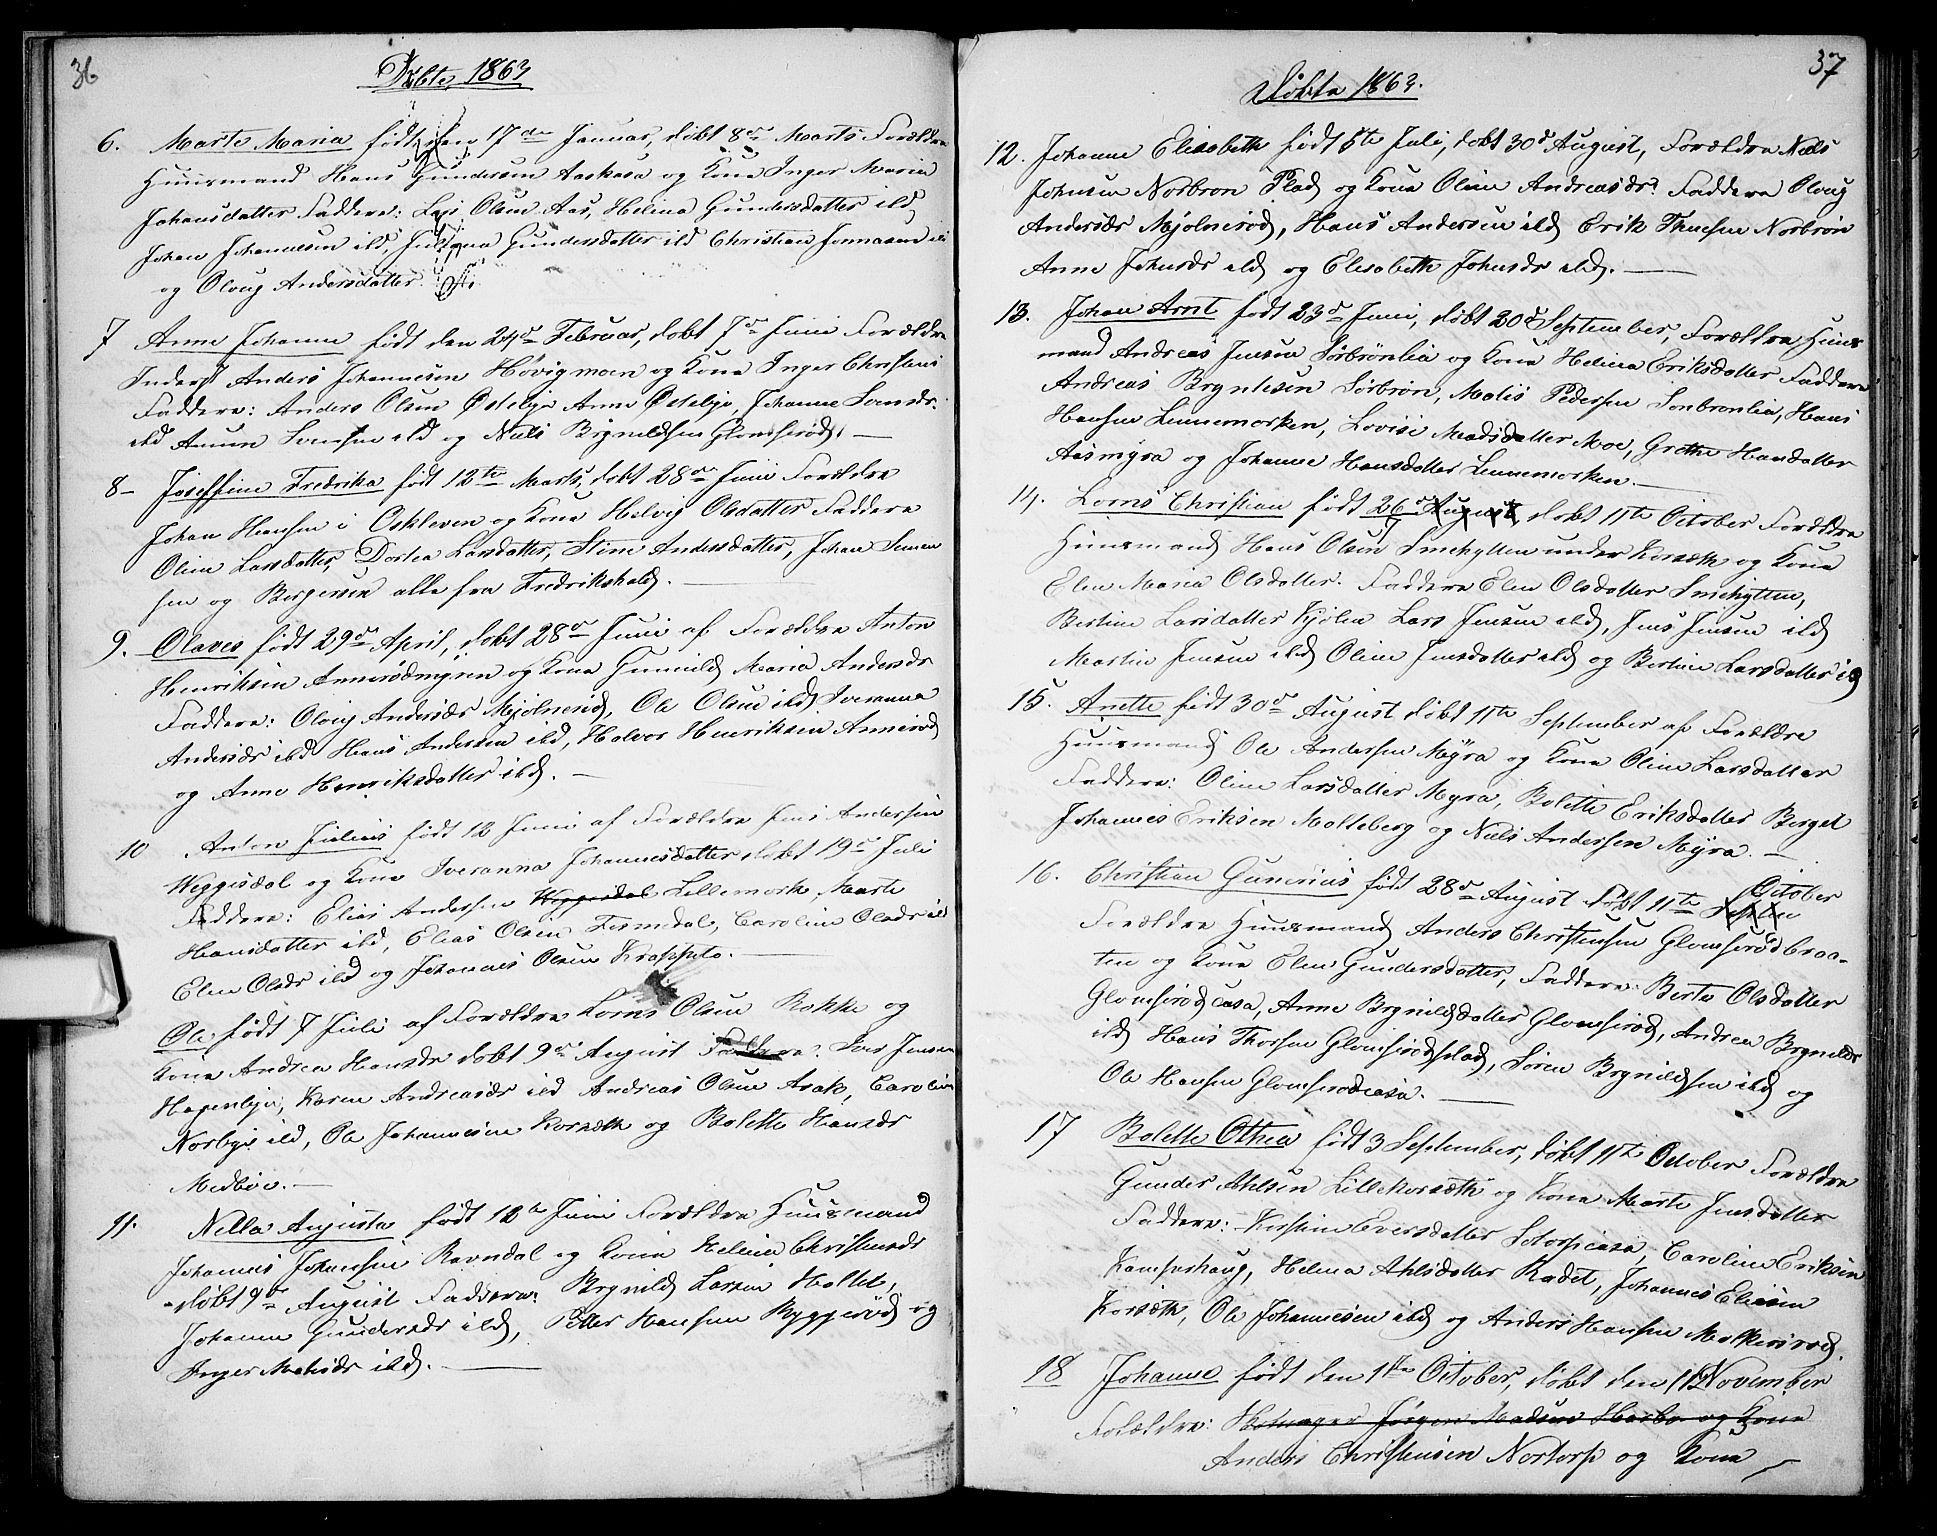 36
Døbte 1863
6. Marte Maria født den 17de Januar, døbt 8de Marts Forældre
Huusmand Hans Gundersen Aaskasa og Kone Inger Maria
Johansdatter Faddere: Lars Olsen Aas, Helena Gundersdatter ibd
Johan Johannesen ibd, Juliana Gundersdatter ibd Christian Jonnasen ibd
og Oloug Andersdatter
7 Anne Johanne født den 24de Februar, døbt 7de Juni Forældre
Inderst Anders Johannesen Høvigmoen og Kone Inger Christens
Faddere: Anders Olsen Østebye Anne Østebye, Johanne Svensdr.
ibd Anum Svensen ibd og Niels Brynildsen Glomserød. —
8- Joseffine Fredrika født 12te Marts, døbt 28de Juni Forældre
Johan Hansen i Oskleven og Kone Helvig Olsdatter Faddere
Oline Larsdatter, Dortea Larsdatter, Stine Andersdatter, Johan Simen
sen og Bergersen alle fra Fredrikshald. —
9. Olaves født 29de April, døbt 28de Juni af Forældre Anton
Henriksen Annerødmyren og Kone Gunnild Maria Andersdr
Faddere: Oloug Andersdr Mjølnerød, Ole Olsen ibd Iveranna
Andersdr ibd Hans Andersen ibd, Halvor Henriksen Annerød
og Anne Henriksdatter ibd. —
10 Anton Julius født 12 Juni af Forældre Jens Andersen
Weggisdal og Kone Iveranna Johannesdatter døbt 19de Juli
Faddere: Elias Andersen Weggesdal Lillemork, Marte
Hansdatter ibd, Elias Olsen Tismedal, Caroline Olsdr ibd
Elen Olsdr ibd og Johannes Olsen Krappeto. —
Ole født 7 Juli af Forældre Lorns Olsen Rokke og
Kone Andrea Hansdr døbt 9de August Faddere: Iver Jensen
Hagenbye, Karen Andreasdr ibd Andreas Olsen Asak, Caroline
Norbye ibd, Ole Johannesen Korsæth og Bolette Hansdr
Medbøe. —
11. Nella Augusta født 12te Juni Forældre Huusmand
Johannes Johansen Ravndal og Kone Helene Christensdr
døbt 9de August Faddere: Brynild Larsen Holtet,
Johanne Gundersdr ibd, Petter Hansen Byggerød og
Inger Matisdr ibd. —
37
Døbte 1863.
12. Johanne Elisabeth født 5te Juli, døbt 30d August, Forældre Niels
Johnsen Norbrøn Plads og Kone Oline Andreasdr. Faddere Oloug
Andersdr Mjølnerød, Hans Andersen ibd Erik Thuesen Norbrøn
Anne Johnsdr ibd og Elisabeth Johnsdr ibd. —
13. Johan Arnt født 23de Juni, døbt 20de September, Forældre Huus
mand Andreas Jensen Sørbrønlia og Kone Helena Eriksdatter Faddere
Andreas Bryntesen Sørbrøn, Matis Pedersen Sørbronlia, Hans
Hansen Lennemorken, Lovise Madsdatter Moe, Grethe Hansdatter
Aasmyra og Johanne Hansdatter Lennemorken. —
14. Lorns Christian født 26de August, døbt 11te October Forældre
Huusmand Hans Olsen Smehytten under Korsæth og Kone
Elen Maria Olsdatter. Faddere Elen Olsdatter Smehytten,
Bertine Larsdatter Kjølen Lars Jensen ibd, Jens Jensen ibd
Martin Jensen ibd Oline Jensdatter ibd og Bertine Larsdatter ibd
15. Anette født 30de August døbt 11te September af Forældre
Huusmand Ole Andersen Myra og Kone Oline Larsdatter
Faddere: Oline Larsdatter Myra, Bolette Eriksdatter Berget
Johannes Eriksen Molteberg og Niels Andersen Myra. —
16. Christian Gunerius født 28de August døbt 11te Septem October
Forældre Huusmand Anders Christensen Glomserødbraa-
ten og Kone Elen Gundersdatter, Faddere: Berte Olsdatter
Glomserødcasa, Anne Brynildsdatter Glomserød, Andrea Brynildsdr
ibd Hans Thorsen Glomserødplads, Søren Brynildsen ibd og
Ole Hansen Glomserødcasa. —
17 Bolette Othea født 3 September, døbt 11te October Forældre
Gunder Ahlsen Lillekorsæth og Kone Marte Jensdatter
Faddere: Kirstine Eversdatter Sotorpcasa, Caroline Eriksen
Kamperhaug, Helena Ahlsdatter Rødet, Johannes Eliesen
Korsæth, Ole Johannesen ibd og Anders Hansen Mokkersrød.
18 Johanne født den 1ste October, døbt den 1 November
Forældre: Jørgen Madsen og Kone
Anders Christensen Nortorp og Kone